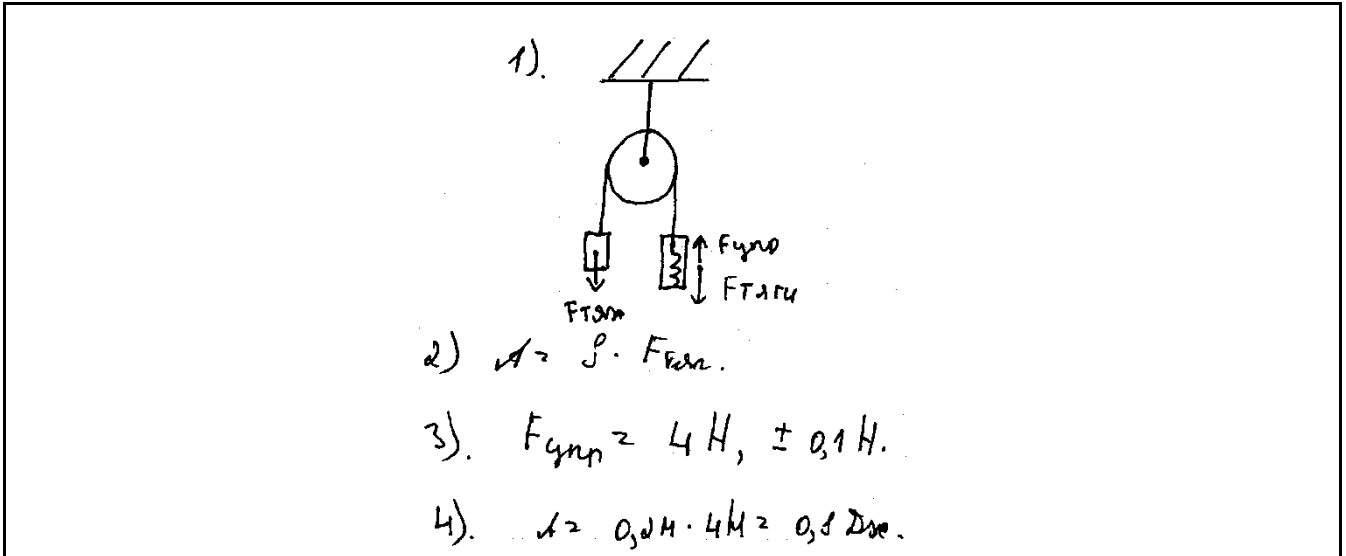 1).
Fупр
Fтяги
Fтяж
2) A = S · Fтяж.
3). Fупр = 4 Н, ± 0,1 Н.
4). A = 0,2м · 4Н = 0,8 Дж.